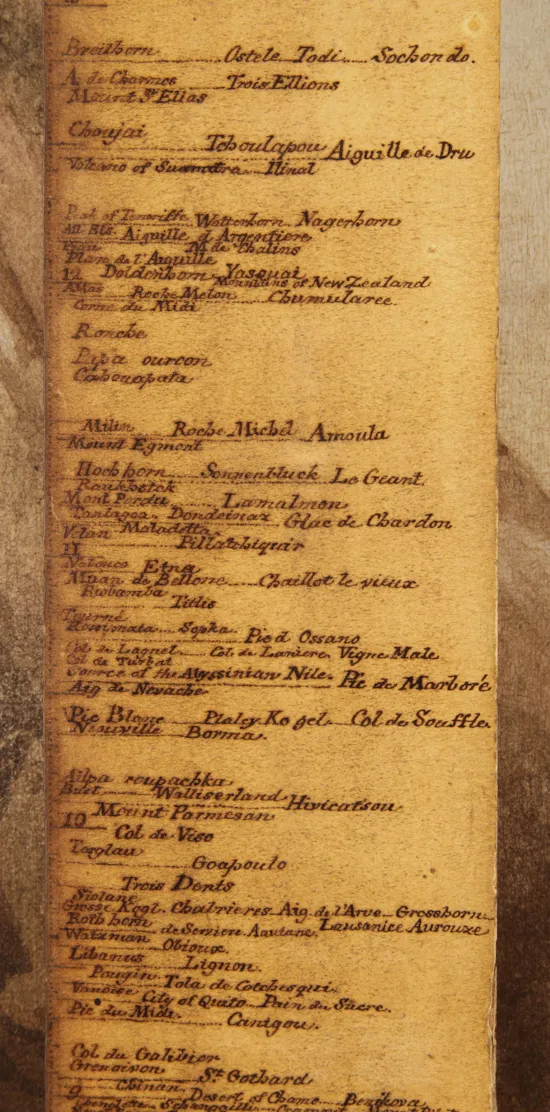 Breithorn Ostele Todi Sochondo.
A. de Charmos Trois Ellions
Mount St Elias
Choujai Tchoulapou Aiguille de Dru
Volcano of Suamatra Ilinal
Peak of Teneriffe Wetterhorn Nagerhorn
Aiguille d'Argentiere
M. de Chalins
Plan de l'Aiguille
12 Doldenhorn Yasouai
Mountains of New Zealand
Roche Melon Chumularee.
Corne du Midi
Ronche
Pipa ourcon
Cahouapata
Milin Roche Michel Amoula
Mount Egmont
Hochhorn Sonnenbluck Le Geant.
Mont Perdu Lamalmon
Dondeinaz Glac de Chardon
Velan Maladetta
11 Pillatchiquir
Etna
Muan de Bellone Chaillot le vieux
Riobamba
Titlis
Tourné
Sopka Pied Ossano
Col de Lagnel Col de Laniere Vigne Male
Col de Turbat
Source of the Abyssinian Nile. Pic de Marboré
Aig de Nevache
Pic Blanc Platey Kogel Col de Souffle.
Neuville Borma.
Ailpa roupachka
Buet Walliserland Hivicatsou
10 Mount Parmesan
Col de Viso
Torglau
Goapoulo
Trois Dents
Siolane
Grosse Kogl. Chalrieres Aig. de l'Arve Grosshorn
Rothhorn de Serviere Aautane Lausanice Aurouze
Watzman
Obioux.
Libanus Lignon.
Pougin Tola de Cotchesqui.
Vanoise City of Quito Pain du Sucre.
Pic du Midi. Canigou.
Col du Galibier
Grenairon St Gothard
Chinan Desert of Chame Benikova
9